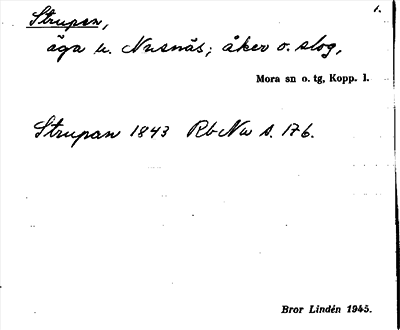 Strupen, 1.
äga u. Nusnäs; åker o. slog,
Mora sn o. tg, Kopp. l.
Strupan 1843 RbNw s. 176.
Bror Lindén 1945.